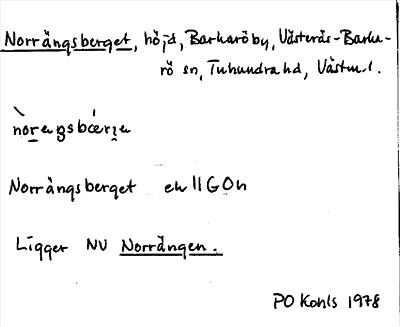 Norrängsberget, höjd, Barkaröby, Västerås-Barka-
rö sn, Tuhundra hd, Västml.
Norrängsberget ek 11G0h
Ligger NV Norrängen.
PO Kohls 1978